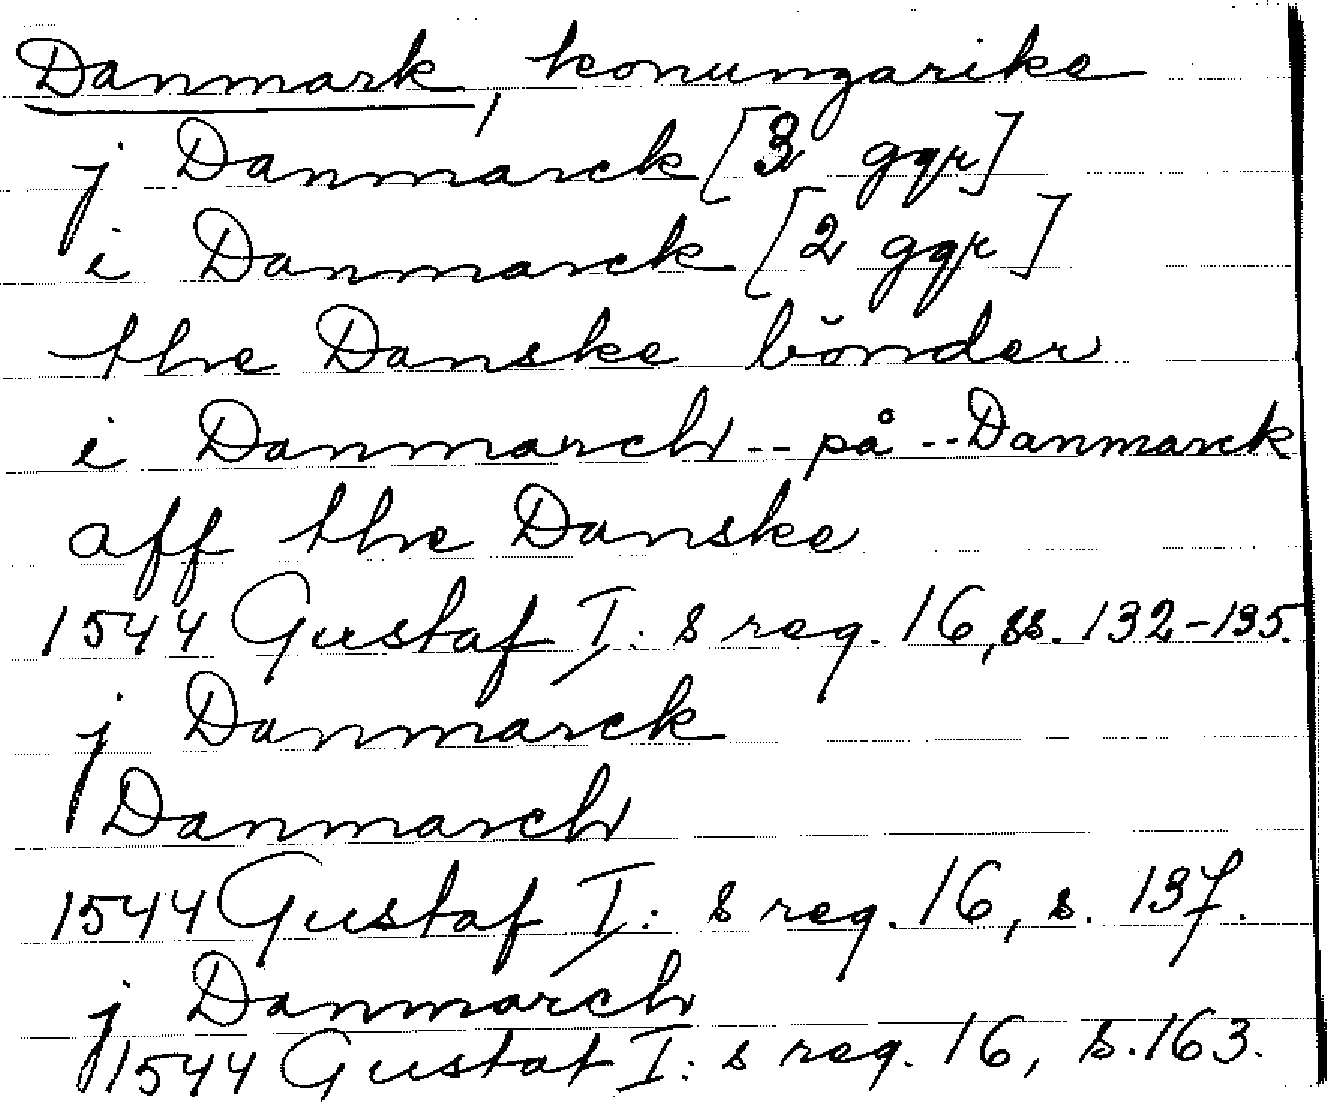 Danmark, konungarike
j Danmarck [3 ggr]
i Danmarck [2 ggr]
the Danske bönder
i Danmarch -- på -- Danmarck
aff the Danske
1544 Gustaf I: s reg. 16, ss. 132-135.
j Danmarck
Danmarch
1544 Gustaf I: s reg. 16, s. 137.
j Danmarch
1544 Gustaf I: s reg. 16, s. 163.